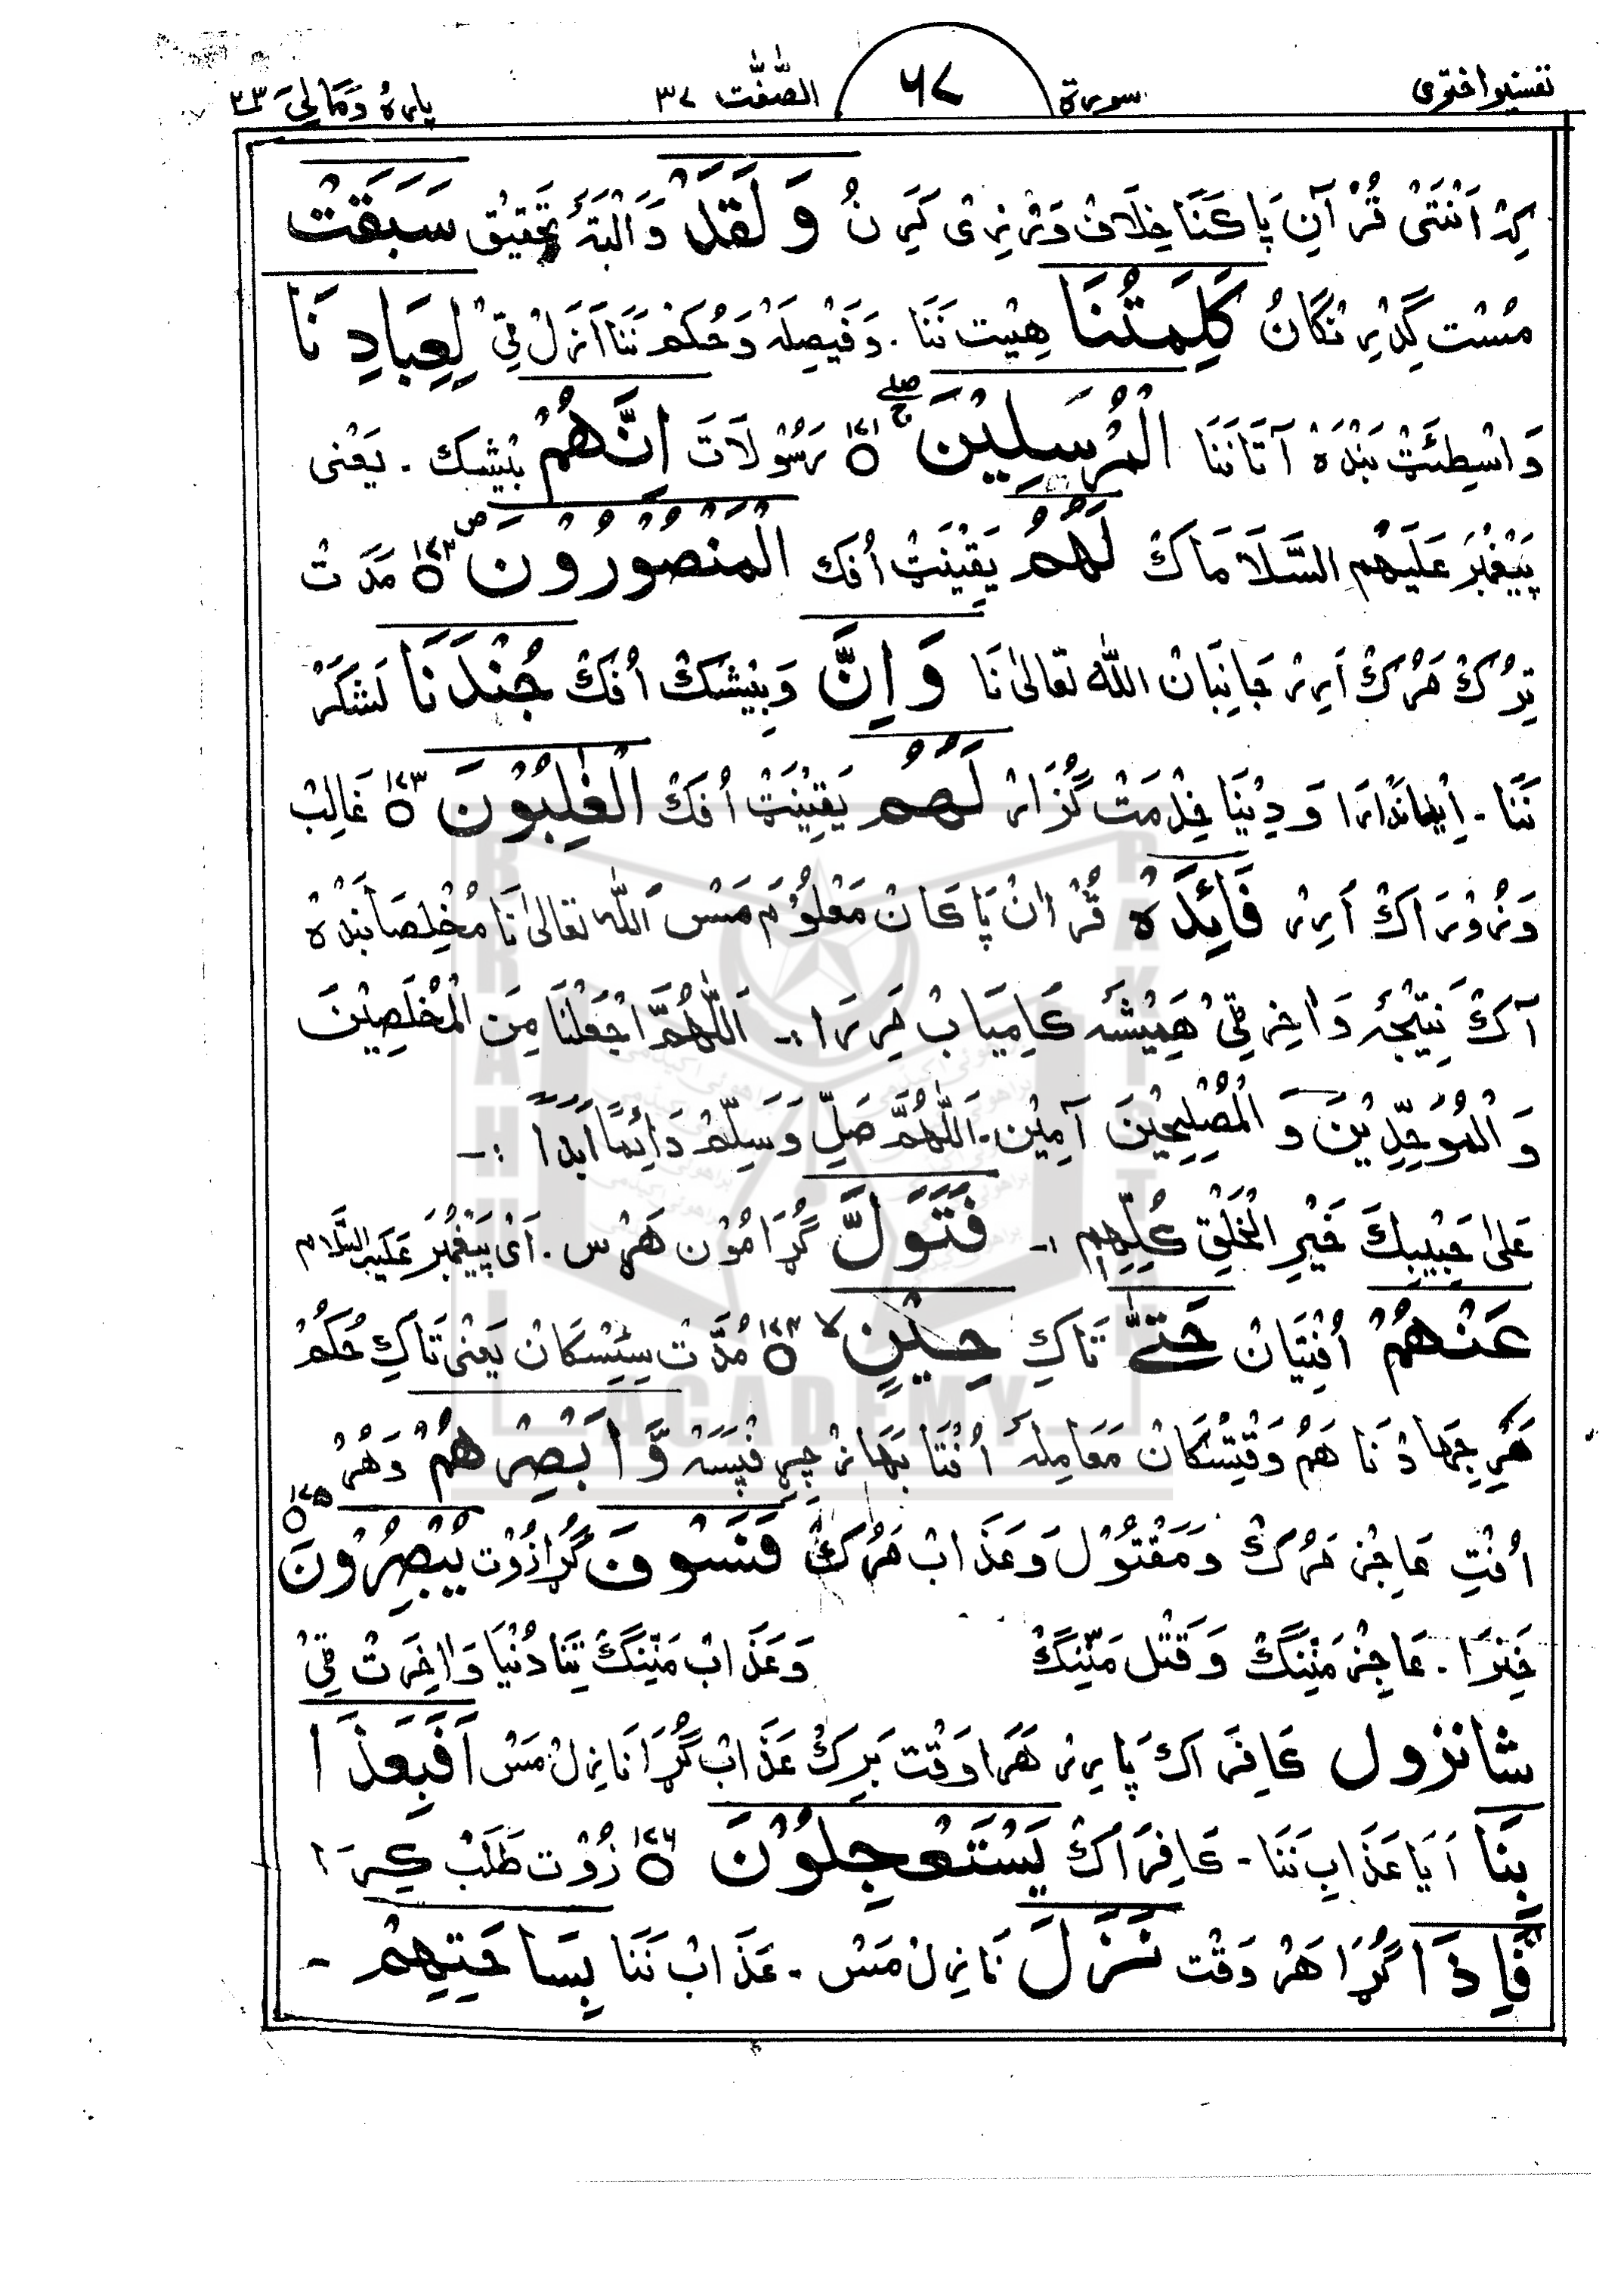 تفسیر اختری سورة ٦٧ الصّٰفّٰت ٣٧ پارہ وَمَالِیَ ٢٣
کِہ اَنْتَئی قُرْآنِ پَاکَنَا خِلَافْ وَرْزِیْ کَرِنُ وَلَقَدْ وَاَلْبَتَہ تَحْقِیْق سَبَقَتْ
مُسْت گِدْرِنْگَانُ کَلِمَتُنَا هِیْت نَنَا . وَفَیْصِلَہ وَحُکَمْ نَنَا اَزَلْ ٹِیْ لِعِبَادِنَا
وَاسْطِئَٹْ بَنْدَہ آتَانَنَا الْمُرْسَلِیْنَ ١٧١ رَسُوْلَاتَ اِنَّهُمْ بَیْشِک . یَعْنِی
پَیْغَمْبَرْ عَلَیْهُم السَّلَامَاکْ لَهُمُ یَقِیْنَٹْ اُفَکْ الْمَنْصُوْرُوْنَ ١٧٢ مَدَتْ
تِرُکْ مَرُکْ اَرِیْر جَانِبَانْ اللہ تَعَالیٰ نَا وَاِنَّ وَبِیْشَکْ اُفَکْ جُنْدَنَا لَشْکَرْ
نَنَا . اِیْمَانْدَارَا وَدِیْنَا خِدْمَتْ گُزَارْ لَهُمُ یَقِیْنَٹْ اُفَکْ الْغٰلِبُوْنَ ١٧٣ غَالِبْ
وَزُوْرَاکْ اَرِیْر فَائِدَہْ قُرْانْ پَاکَانْ مَعْلُوْم مَسْ اللہ تعالیٰ نَا مُخْلِصَا بَنْدَہ
آکْ نَتِیْجَہ وَاٰخِرْ ٹِیْ هَمِیْشَہ کَامِیَابْ مَرِرَا :۔ اَللّٰهُمَّ اجْعَلْنَا مِنَ الْمُخْلَصِیْنَ
وَالْمُوَحِّدِیْنَ وَالْمُصْلِحِیْنَ آمِیْن . اَللّٰهُمَّ صَلِّ وَسَلِّمْ دَائِمًا اَبَدًا :۔
عَلیٰ حَبِیْبِکَ خَیْرِ الْخَلْقِ کُلِّهِم :۔ فَتَوَلَّ گُڑَا مُوْن هَرْس . اَیْ پَیْغَمْبَرْ عَلَیْہِ السَّلَام
عَنْهُمْ اُفْتِیَانْ حَتّٰی تَاکِ حِیْنٍ ١٧٤ مُدَّت سِیْسْکَانْ یَعْنِی تَاکِ حُکَمْ
مَرِ جِهَادْ نَا هَمُ وَقْتِسْکَانْ مَعَامِلَہ اُفْتَا بَهَازْ چِرِفْپَسَہ وَّاَبْصِرْهُمْ وَهُرْ
اُفْتِ عَاجِزْ مَرُکْ وَمَقْتُوْلْ وَعَذَابْ مَرُکْ فَسَوْفَ گُڑَا زُوْت یُبْصِرُوْنَ ١٧٥
خَنِرَا . عَاجِزْ مَنِنْگْ وَقَتْل مَنِّنْگْ وَعَذَابْ مَنِّنْگْ تِنَا دُنْیَا وَاٰخِرَتْ ٹِیْ
شانزول کَافِرَاکْ پَارِیْر هَرَا وَقْت بَرِکْ عَذَابْ گُڑَا نَازِلْ مَسْ اَفَبِعَذَا
بِنَا اَیَا عَذَابِ نَنَا - کَافِرَاکْ یَسْتَعْجِلُوْنَ ١٧٦ زُوْت طَلَبْ کِرَا
فَاِذَا گُڑَا هَرْ وَقْت نَزَلَ نَازِلْ مَسْ - عَذَابْ نَنَا بِسَاحَتِهِمْ -
BRAHUI ACADEMY PAKISTAN